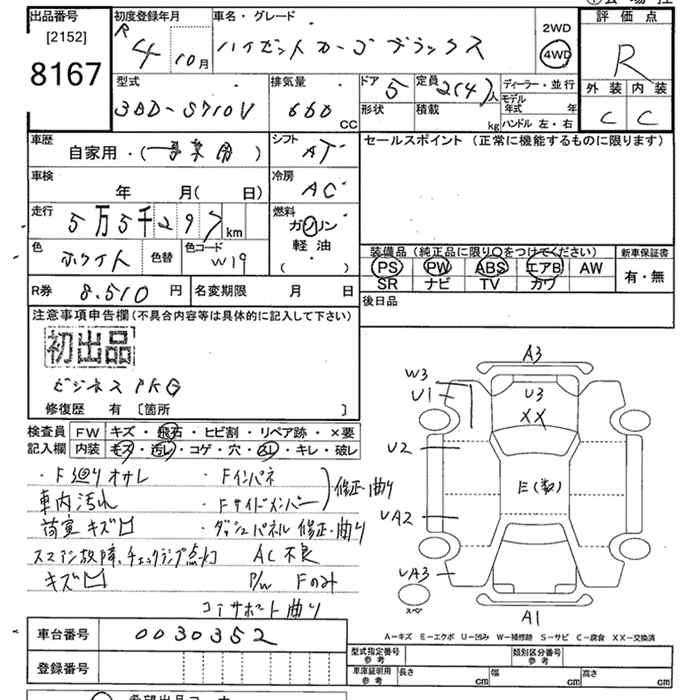 出品番号 初度登録年月 車名・グレード 評価点
[2152] R 4 10月 ハイゼットカーゴ デラックス 2WD
8167 4WD R
型式 排気量 ドア 5 定員 2(4)人 ディーラー・並行 外装 内装
3BD-S710V 660 CC 形状 積載 kg モデル年式 年 C C
ハンドル 左・右
車歴 自家用・(事業用) シフト AT セールスポイント (正常に機能するものに限ります)
車検 年 月( 日) 冷房 AC
走行 5万5千297km 燃料 ガソリン
軽油
( ・ )
色 ホワイト 色替 色コード W19
装備品 (純正品に限り○をつけてください) 新車保証書
PS PW ABS エアB AW 有・無
SR ナビ TV カワ
R券 8,510 円 名変期限 月 日 後日品
注意事項申告欄 (不具合内容等は具体的に記入して下さい)
初出品
ビジネスPKG
修復歴 有 [箇所 ]
検査員 FW キズ・飛石・ヒビ割・リペア跡・×要
記入欄 内装 キズ・汚レ・コゲ・穴・凹・キレ・破レ
・F廻りオサレ ・Fインパネ
車内汚れ ・Fサイドメンバー 修正・曲り
荷室キズ凹 ・ダッシュパネル 修正・曲り
スマアシ故障、チェックランプ点灯 AC不良
キズ凹 P/W Fのみ
コアサポート曲り
A3
W3
U1
U3
XX
U2
E(数)
UA2
UA3
スペ
A1
A−キズ E−エクボ U−凹み W−補修跡 S−サビ C−腐食 XX−交換済
車台番号 0030352
登録番号
型式指定番号 参考 類別区分番号 参考
車庫証明用 参考 長さ cm 幅 cm 高さ cm